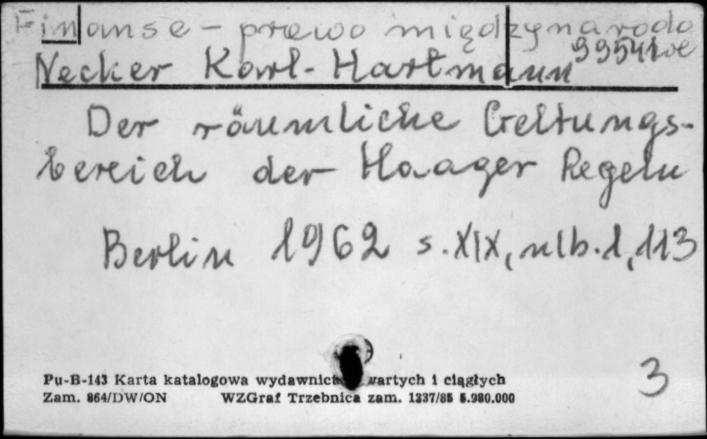 Finanse - prawo międzynarodowe
99541
Necker Karl-Hartmann
Der räumliche Geltungs-
bereich der Haager Regeln
Berlin 1962 s. XIX, nlb. 1, 113
3
Pu-B-143 Karta katalogowa wydawnictw zwartych i ciągłych
Zam. 864/DW/ON WZGraf Trzebnica zam. 1337/85 5.980.000